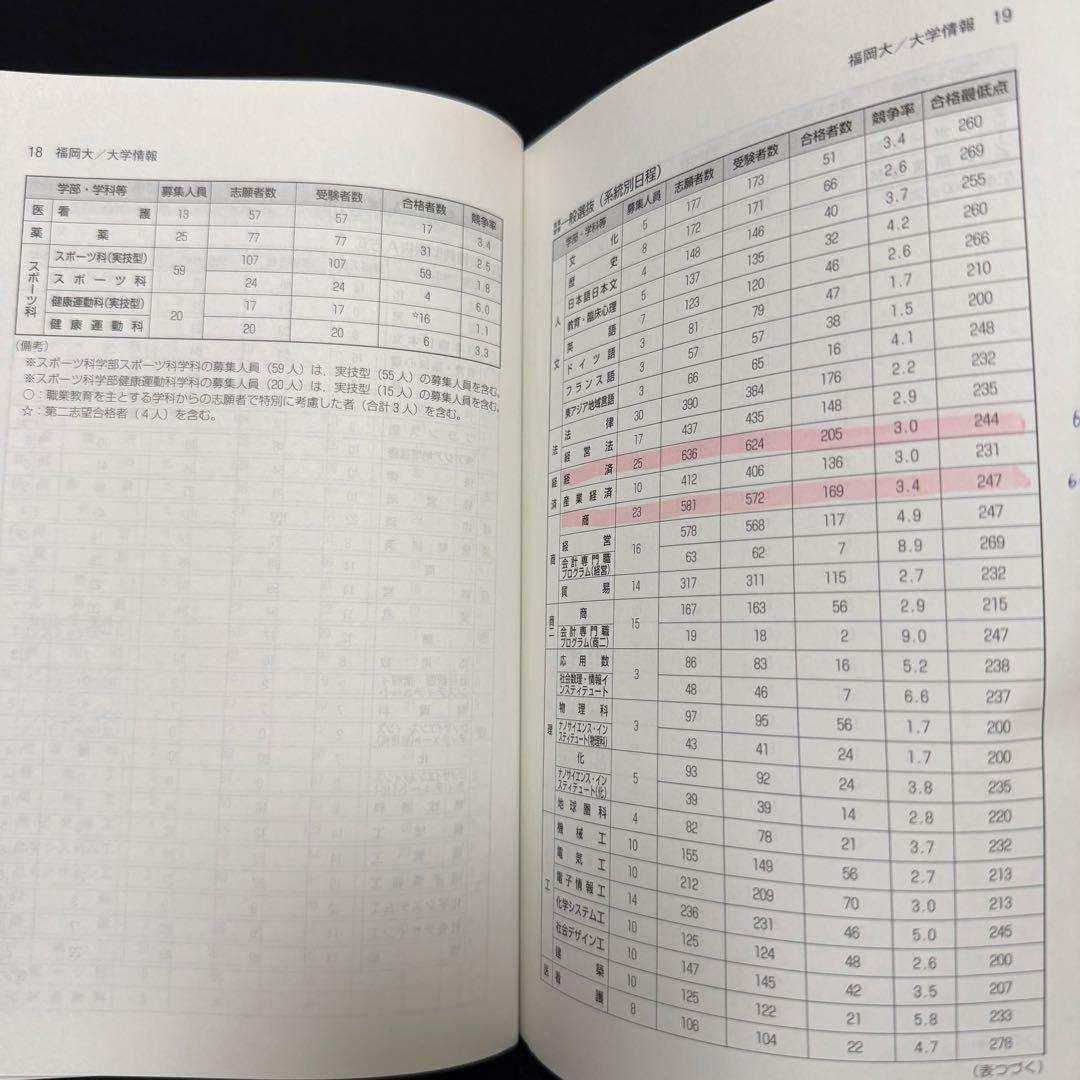 18 福岡大／大学情報
学部・学科等 募集人員 志願者数 受験者数 合格者数 競争率
医 看護 13 57 57 17 3.4
薬 薬 25 77 77 31 2.5
スポーツ科 スポーツ科(実技型) 59 107 107 59 1.8
スポーツ科 24 24 4 6.0
健康運動科(実技型) 20 17 17 ☆16 1.1
健康運動科 20 20 6 3.3
（備考）
※スポーツ科学部スポーツ科学科の募集人員（59人）は、実技型（55人）の募集人員を含む。
※スポーツ科学部健康運動学科の募集人員（20人）は、実技型（15人）の募集人員を含む。
○：職業教育を主とする学科からの志願者で特別に考慮した者（合計3人）を含む。
☆：第二志望合格者（4人）を含む。
福岡大／大学情報 19
一般選抜（系統別日程）
学部・学科等 募集人員 志願者数 受験者数 合格者数 競争率 合格最低点
人文 文化 5 177 173 51 3.4 260
歴史 8 172 171 66 2.6 269
日本語日本文 4 148 146 40 3.7 255
教育・臨床心理 5 137 135 32 4.2 260
英語 7 123 120 46 2.6 266
ドイツ語 3 81 79 47 1.7 210
フランス語 3 57 57 38 1.5 200
東アジア地域言語 3 66 65 16 4.1 248
法 法律 30 390 384 176 2.2 232
経営法 17 437 435 148 2.9 235
経済 経済 25 636 624 205 3.0 244
産業経済 10 412 406 136 3.0 231
商 商 23 581 572 169 3.4 247
経営 16 578 568 117 4.9 247
会計専門職プログラム(経営) 63 62 7 8.9 269
貿易 14 317 311 115 2.7 232
商二 商 15 167 163 56 2.9 215
会計専門職プログラム(商二) 19 18 2 9.0 247
理 応用数 3 86 83 16 5.2 238
社会数理・情報インスティテュート 48 46 7 6.6 237
物理科 3 97 95 56 1.7 200
ナノサイエンス・インスティテュート(物理科) 43 41 24 1.7 200
化 5 93 92 24 3.8 235
ナノサイエンス・インスティテュート(化) 39 39 14 2.8 220
地球圏科 4 82 78 21 3.7 232
工 機械工 10 155 149 56 2.7 213
電気工 10 212 209 70 3.0 213
電子情報工 14 236 231 46 5.0 245
化学システム工 10 125 124 48 2.6 200
社会デザイン工 10 147 145 42 3.5 207
建築 10 125 122 21 5.8 233
医 看護 8 106 104 22 4.7 278
（表つづく）